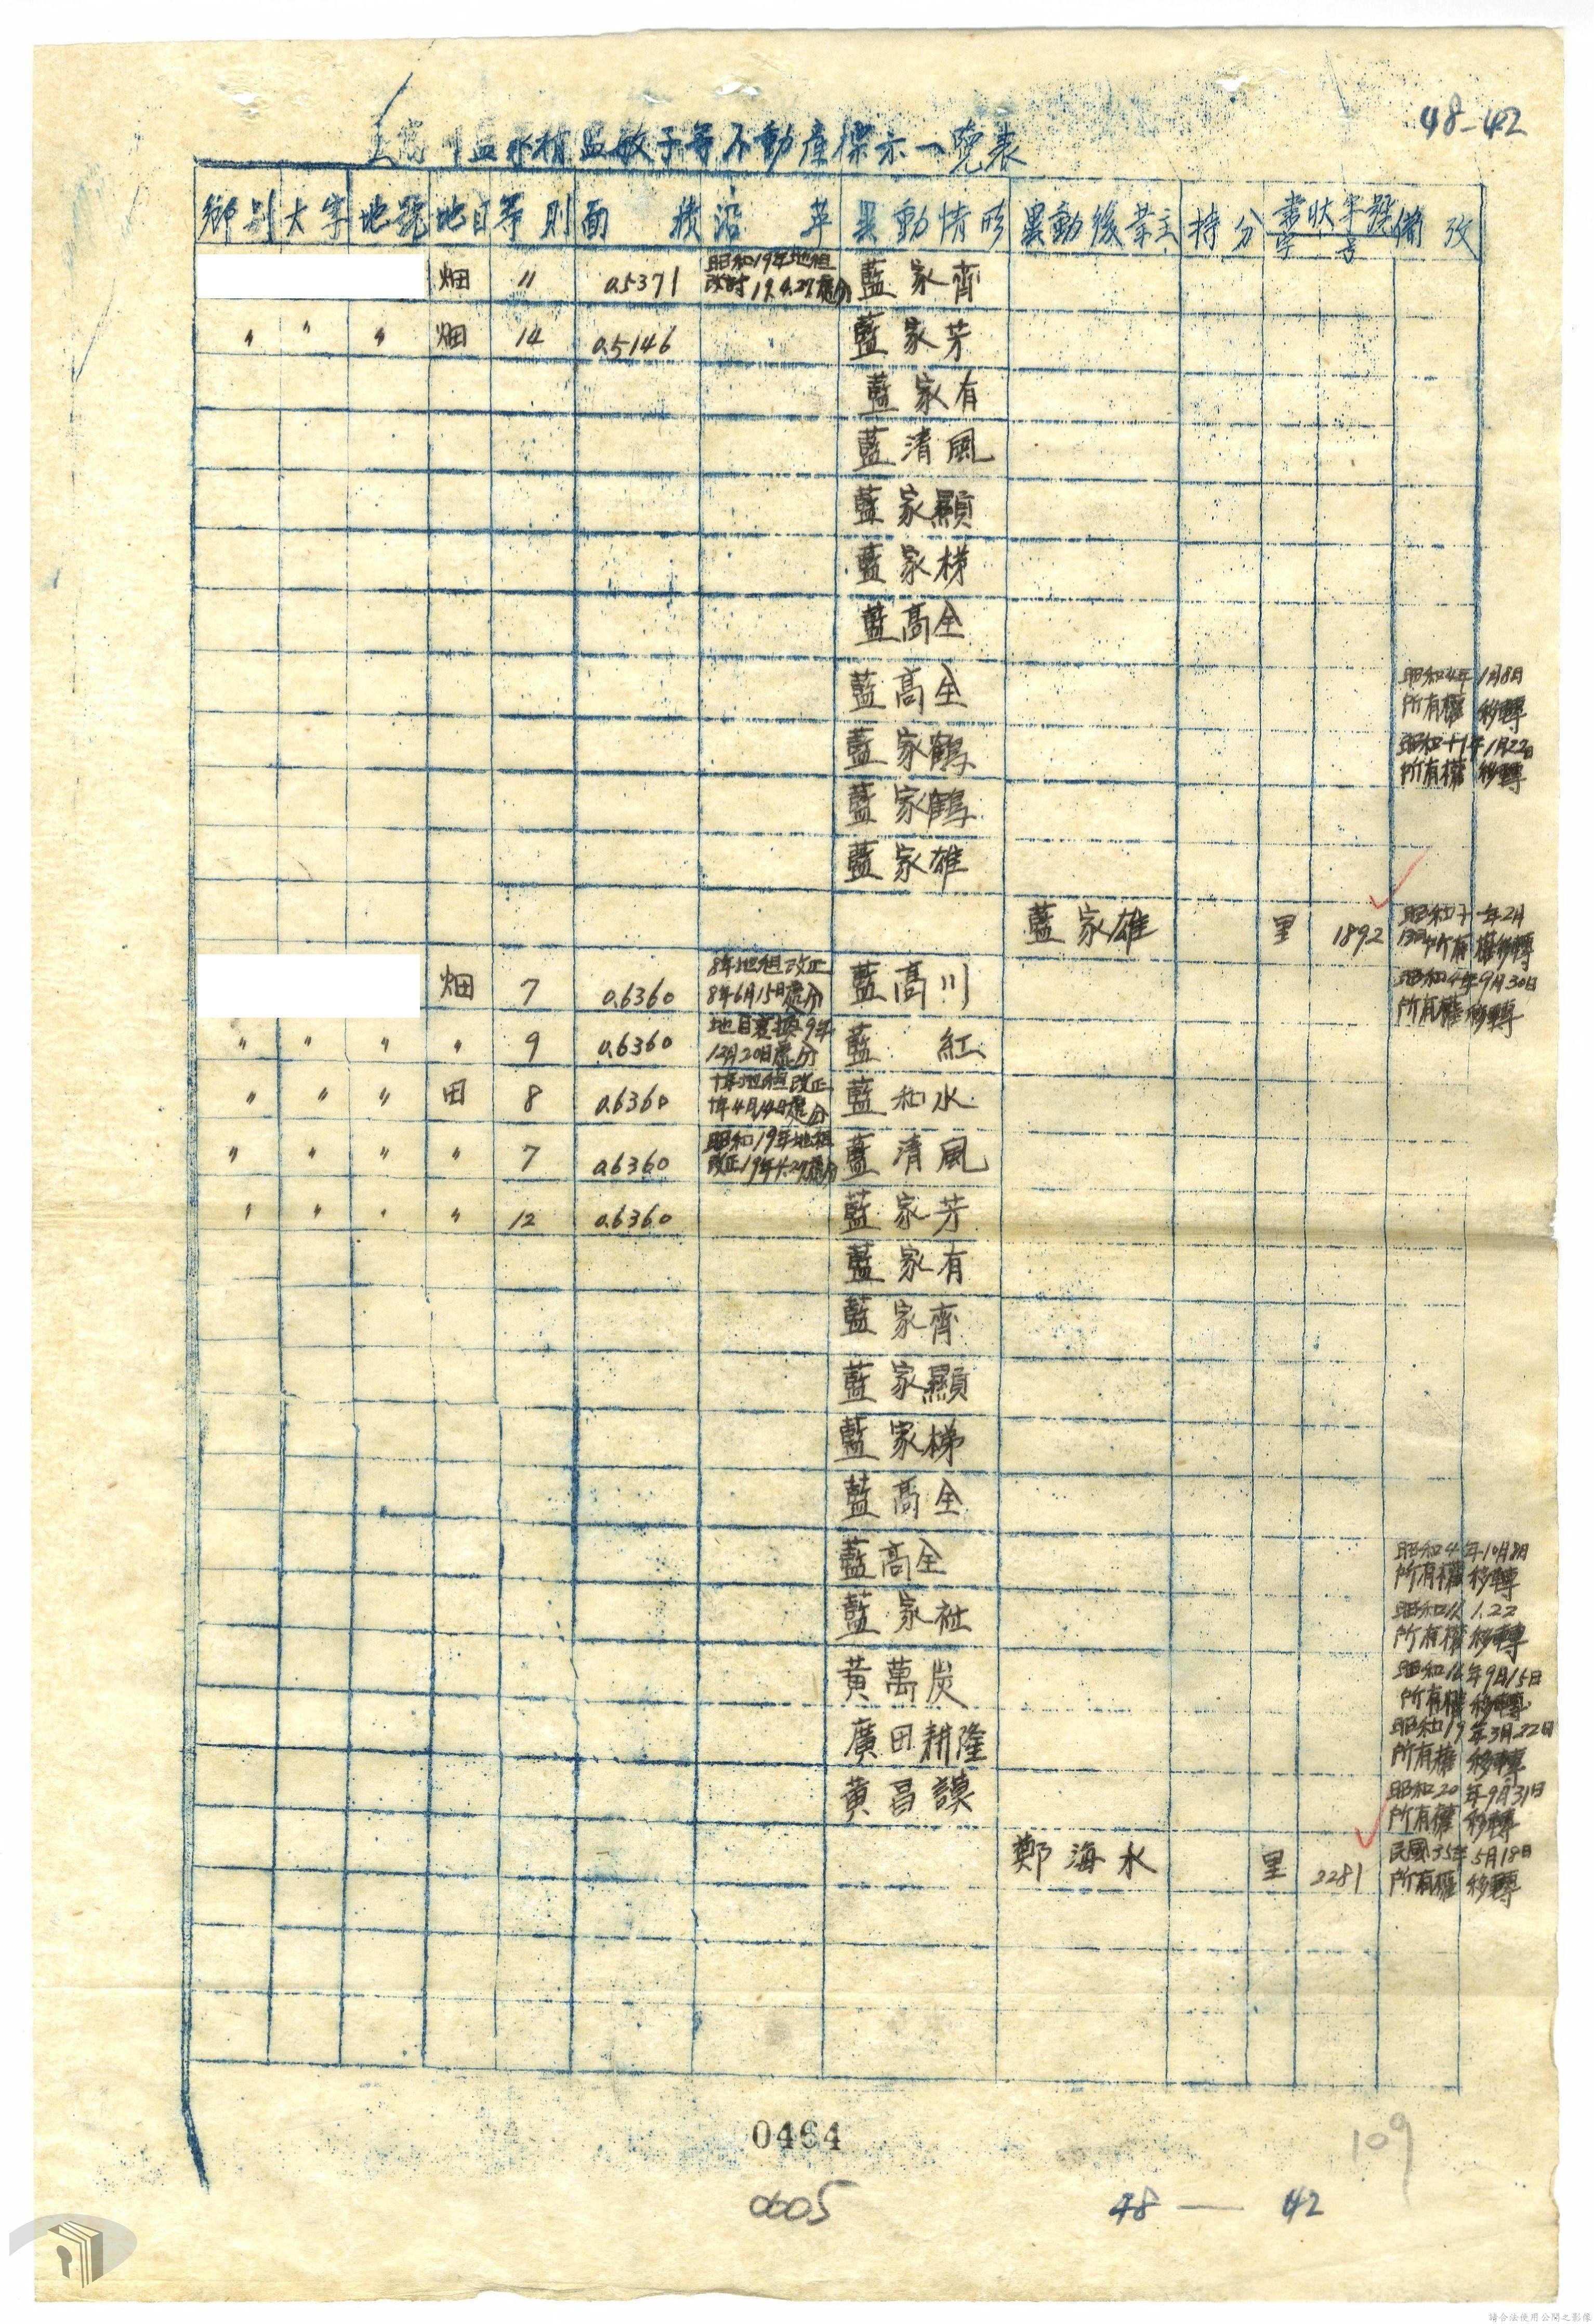 48-42
等不動產標示一覽表
鄉別 大字 地號 地目 等則 面積 沿革 異動情形 異動後業主 持分 書狀字號 字 号 備攷
畑 11 0.5371 昭和19年地租 藍家齊
改時 19.4.27處分
〃 〃 〃 畑 14 0.5146 藍家芳
藍家有
藍清風
藍家顯
藍家梯
藍高全
藍高全 昭和4年1月8日
所有權移轉
藍家鶴 昭和十1年1月22日
所有權移轉
藍家鶴
藍家雄
藍家雄 里 1892 昭和十一年2月
所有權移轉
畑 7 0.6360 8年地租改正 藍高川 昭和4年9月30日
8年6月15日處分 所有權移轉
〃 〃 〃 〃 9 0.6360 地目変換9年 藍 紅
12月20日處分
〃 〃 〃 田 8 0.6360 十年地租改正 藍和水
十年4月14日處分
〃 〃 〃 〃 7 0.6360 昭和19年地租 藍清風
改正19年4.27處分
〃 〃 〃 〃 12 0.6360 藍家芳
藍家有
藍家齊
藍家顯
藍家梯
藍高全
藍高全 昭和4年10月8日
所有權移轉
藍家祉 昭和11 1.22
所有權移轉
黃萬炭 昭和16年9月15日
所有權移轉
廣田耕隆 昭和19年3月22日
所有權移轉
黃昌謨 昭和20年9月31日
所有權移轉
鄭海水 里 2281 民國35年5月18日
所有權移轉
0464
109
0605
48 — 42
請合法使用公開之影像